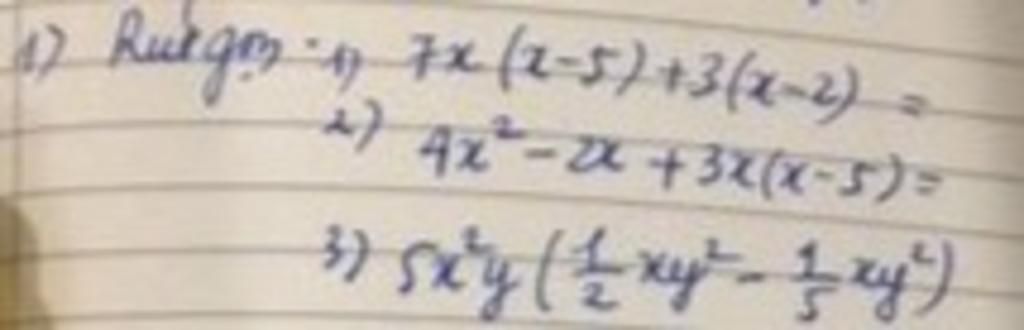 1) Rút gọn: 1) 7x(x-5)+3(x-2) =
2) 4x²-2x+3x(x-5)=
3) 5x²y(1/2 xy² - 1/5 xy²)